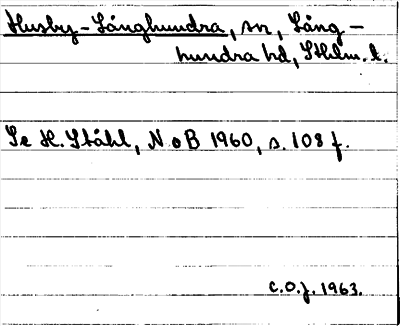 Husby-Långhundra, sn, Lång-
hundra hd, Sthlm. l.
Se H. Ståhl, NoB 1960, s. 108 f.
C.O.J. 1963.